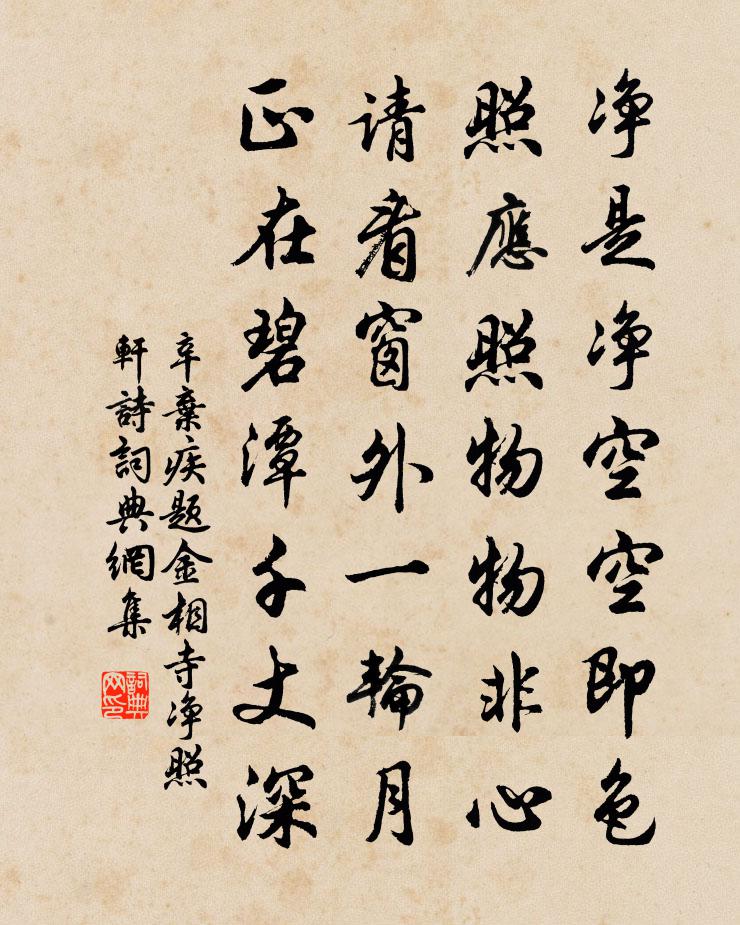 净是净空空即色
照應照物物非心
请看窗外一輪月
正在碧潭千丈深
辛棄疾题金相寺净照
軒詩詞典網集
詞典網印